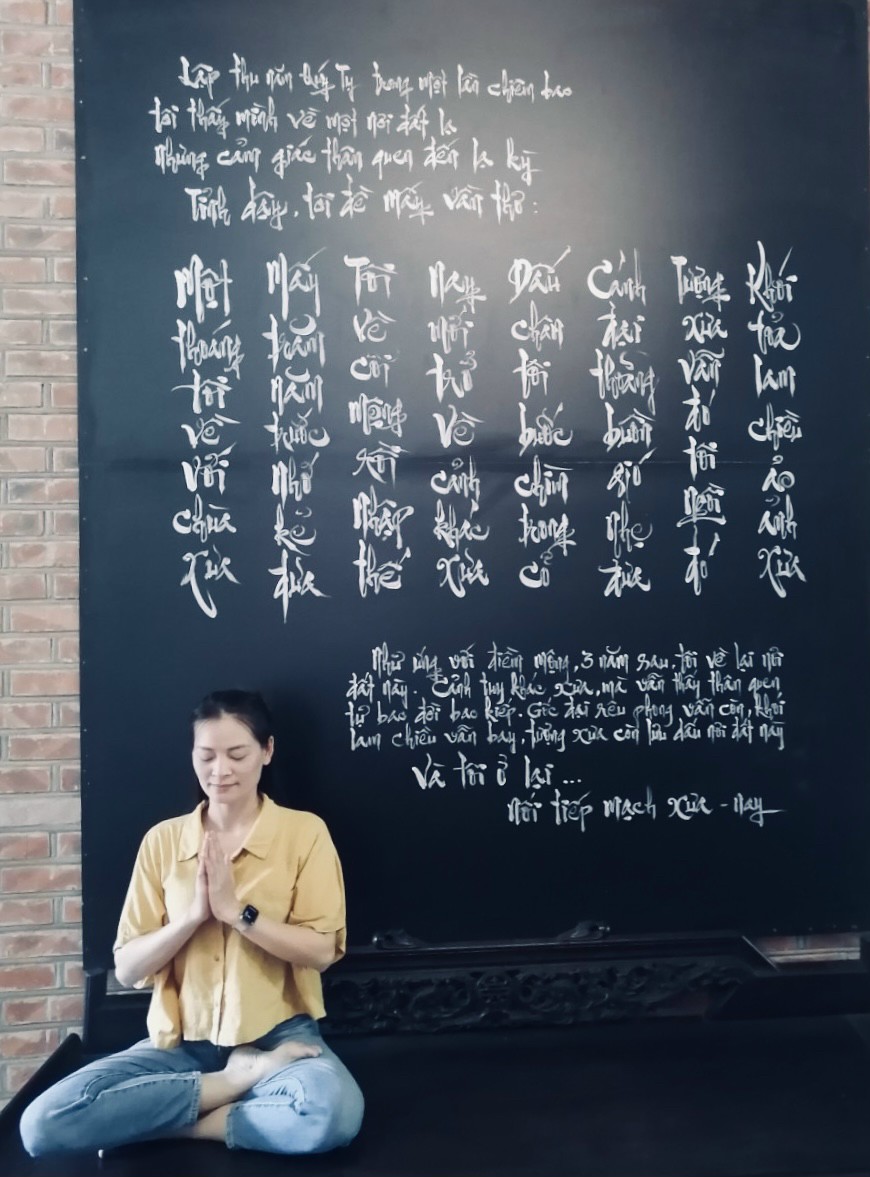 Lập thu năm Quý Tỵ trong một lần chiêm bao
tôi thấy mình về một nơi đất lạ
những cảm giác thân quen đến lạ kỳ
Tỉnh dậy, tôi đề mấy vần thơ:
Một thoáng tôi về với chùa xưa
Mấy trăm năm trước nhớ kẻ đưa
Tôi về cõi mộng rồi nhập thế
Nay mới trở về cảnh khác xưa
Dấu chân tôi bước chìn trong cỏ
Cảnh đại thoảng buồn gió nhẹ đưa
Tượng xưa vẫn đó tôi ngồi đó
Khói tỏa lam chiều ảo ảnh xưa
Như ứng với điềm mộng, 3 năm sau, tôi về lại nơi
đất này. Cảnh tuy khác xưa, mà vẫn thấy thân quen
tự bao đời bao kiếp. Gốc đại rêu phong vẫn còn, khói
lam chiều vẫn bay, tượng xưa còn lưu dấu nơi đất này
Và tôi ở lại ...
nối tiếp mạch xưa - nay